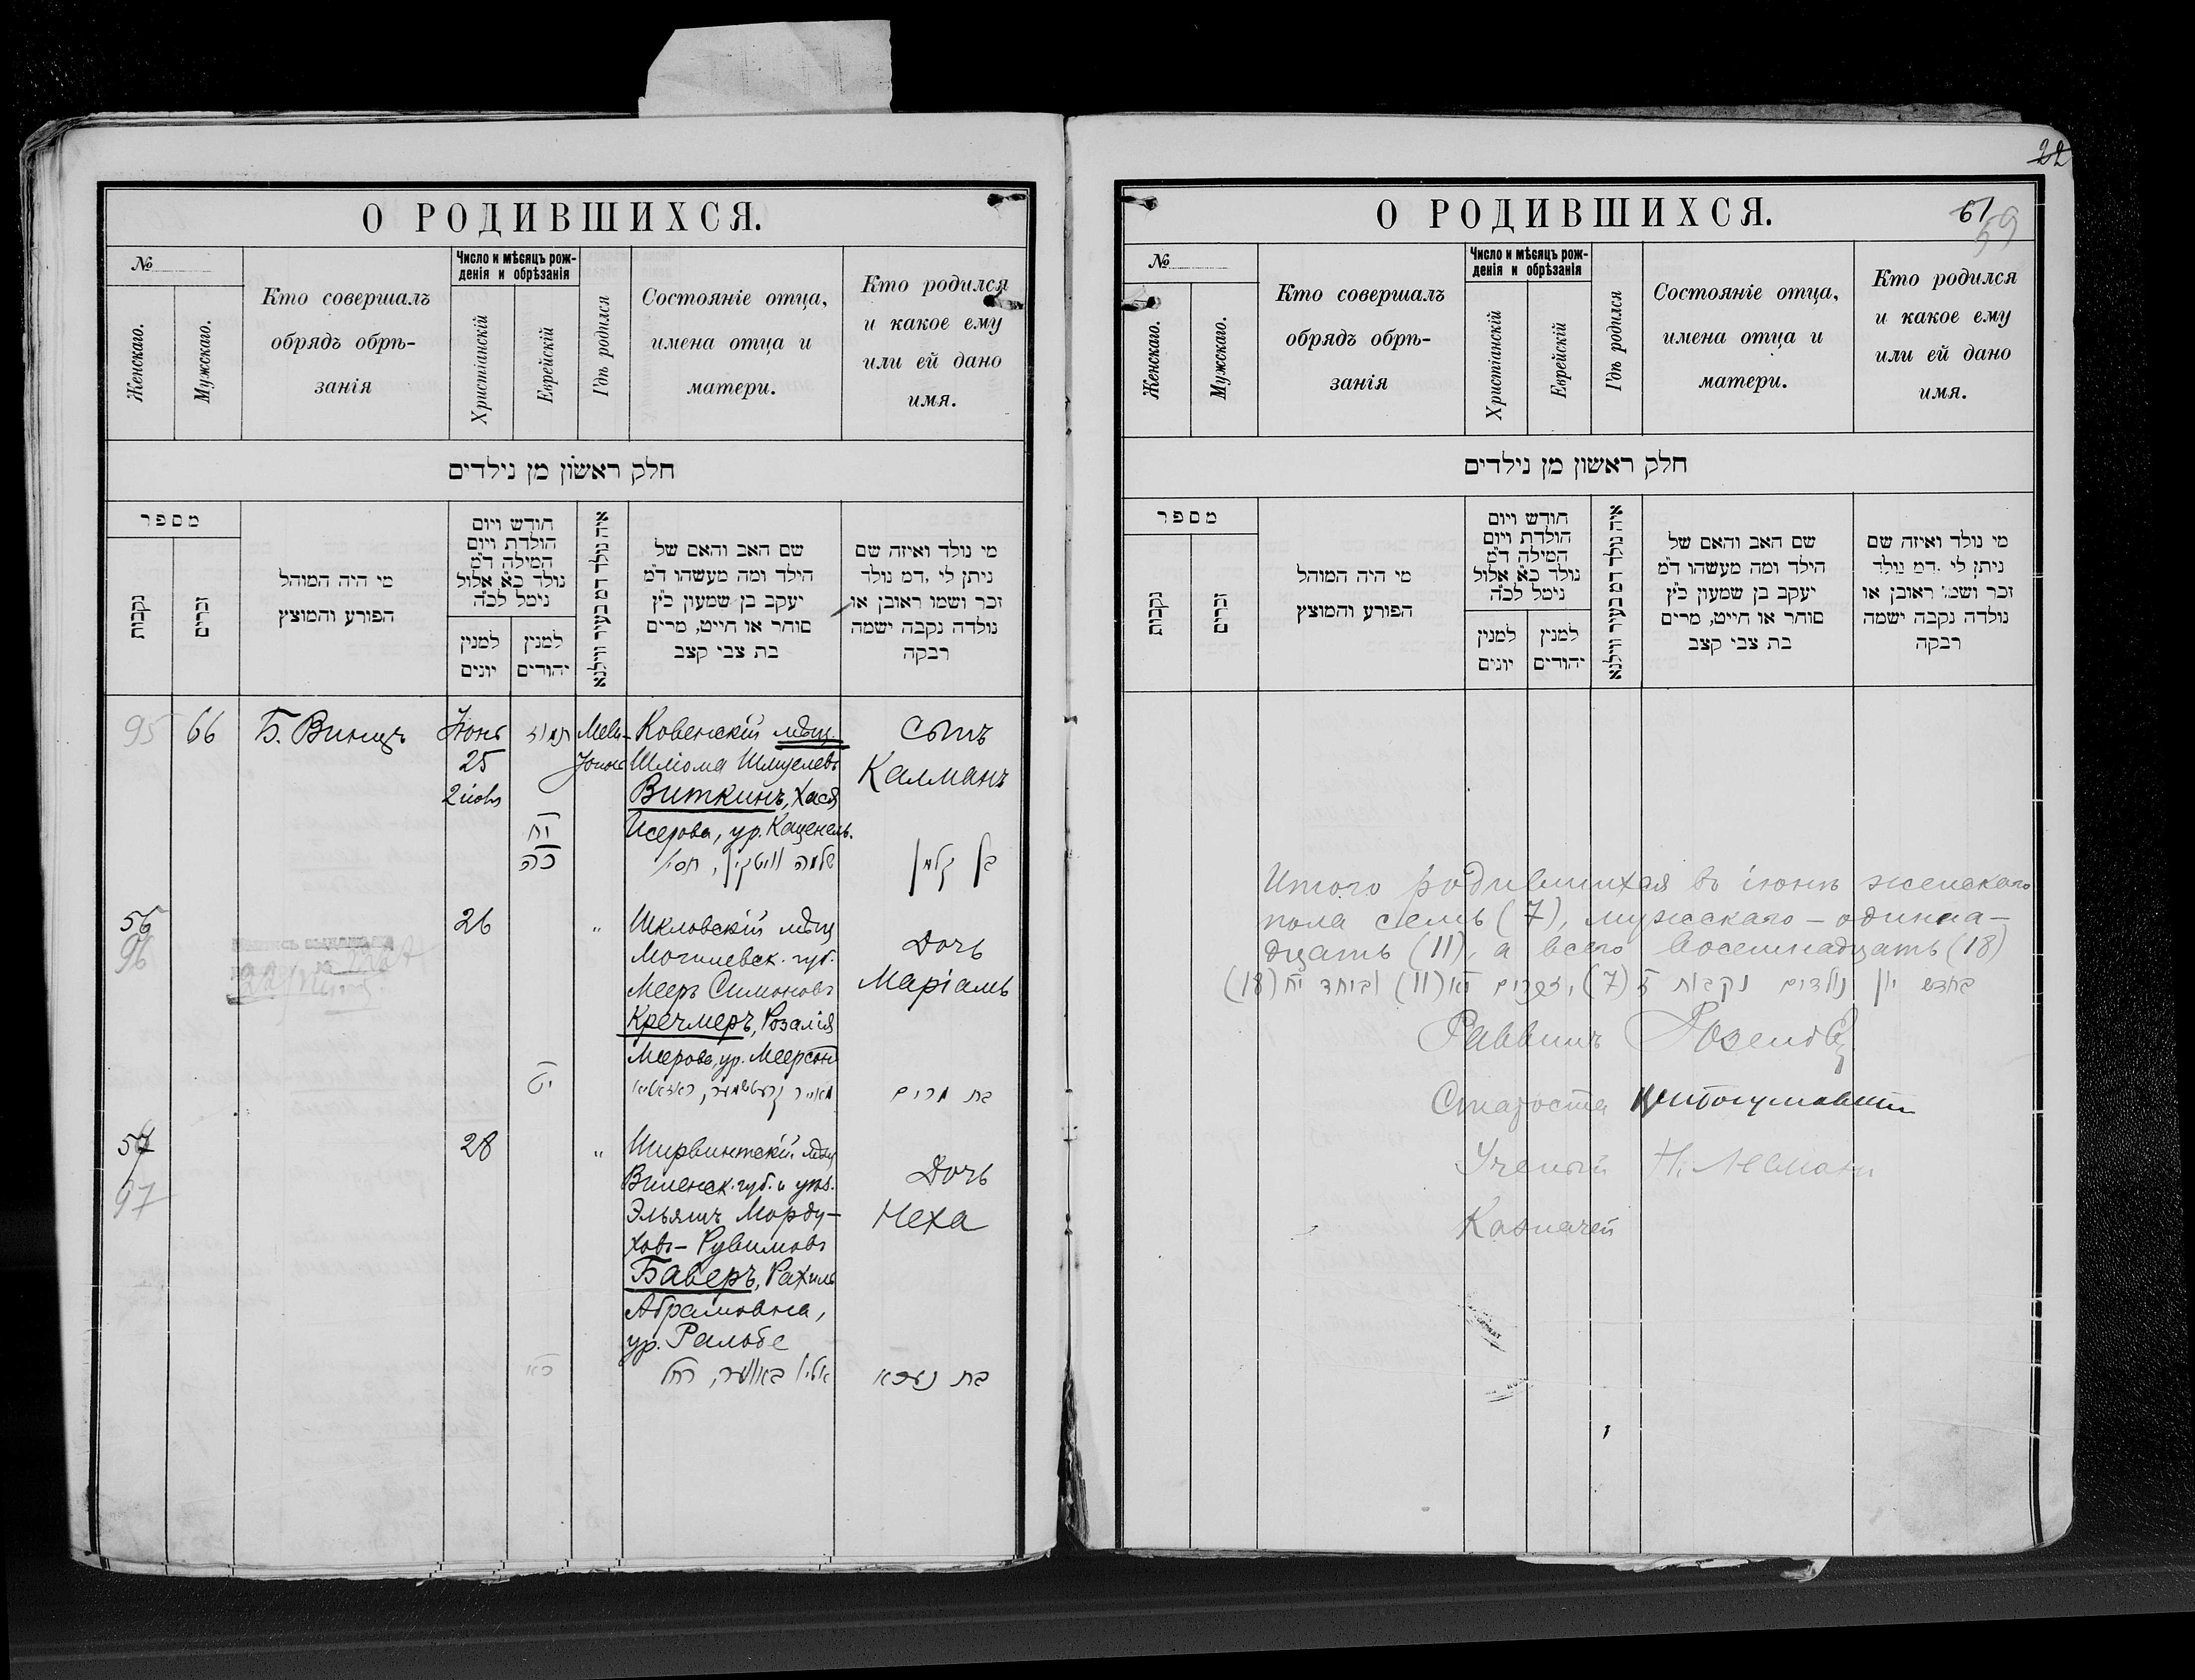 О РОДИВШИХСЯ.
№
Женскаго.
Мужскаго.
Кто совершалъ
обрядъ обрѣ-
занія
Число и мѣсяцъ рож-
денія и обрѣзанія
Христіанскій
Еврейскій
Гдѣ родился
Состояніе отца,
имена отца и
матери.
Кто родился
и какое ему
или ей дано
имя.
חלק ראשון מן נילדים
מספר
נקבות
זכרים
מי היה המוהל
הפורע והמוצץ
חודש ויום
הולדת ויום
המילה ד״מ
נולד כ״א אלול
נימל לכ״ה
למנין
יונים
למנין
יהודים
איה נולד דמ בעיר ווילנא
שם האב והאם של
הילד ומה מעשהו ד״מ
יעקב בן שמעון כ״ץ
סוחר או חייט, מרים
בת צבי קצב
מי נולד ואיזה שם
ניתן לי .דמ נולד
זכר ושמו ראובן או
נולדה נקבה ישמה
רבקה
95
66
Б. Виницъ
Іюнь
25
2 іюля
תמוז
יח
כה
Ковенскій мѣщ.
Шліома Шмуелевъ
Виткинъ, Хася
Исерова, ур. Каценель.
שלמה וויטקין, חסי׳
Сынъ
Калманъ
בן קלמן
56
96
26
יט
"
Шкловскій мѣщ
Могилевск. губ.
Мееръ Симоновъ
Кречмеръ, Розалія
Меерова, ур. Меерсонъ
Дочь
Маріамъ
בת מרים
57
97
28
כא
"
Ширвинтскій мѣщ
Виленск. губ. и уѣз.
Эльяшъ Морду-
ховъ-Рувимовъ
Баверъ, Рахиль
Абрамовна,
ур. Ральбе
אלי׳ באווער, רחל
Дочь
Неха
בת נעכא
22
О РОДИВШИХСЯ.
61
59
№
Женскаго.
Мужскаго.
Кто совершалъ
обрядъ обрѣ-
занія
Число и мѣсяцъ рож-
денія и обрѣзанія
Христіанскій
Еврейскій
Гдѣ родился
Состояніе отца,
имена отца и
матери.
Кто родился
и какое ему
или ей дано
имя.
חלק ראשון מן נילדים
מספר
נקבות
זכרים
מי היה המוהל
הפורע והמוצץ
חודש ויום
הולדת ויום
המילה ד״מ
נולד כ״א אלול
נימל לכ״ה
למנין
יונים
למנין
יהודים
איה נולד דמ בעיר ווילנא
שם האב והאם של
הילד ומה מעשהו ד״מ
יעקב בן שמעון כ״ץ
סוחר או חייט, מרים
בת צבי קצב
מי נולד ואיזה שם
ניתן לי .דמ נולד
זכר ושמו ראובן או
נולדה נקבה ישמה
רבקה
Итого родившихся въ іюнѣ женскаго
пола семь (7), мужскаго - одинна-
дцать (11), а всего восемнадцать (18)
בחדש יון נולדים נקבות ז (7), זכרים יא (11) וביחד יח (18)
Раввинъ
Староста
Ученый
Казначей